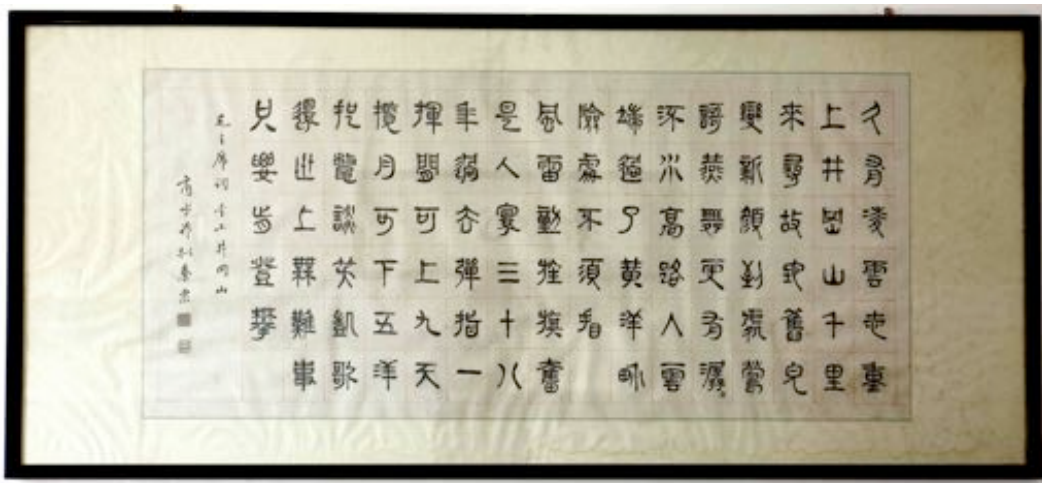 久有凌雲志重
上井岡山千里
來尋故地舊皃
變新顏到處鶯
語燕舞更有潺〻
流水高路入雲
端過了黃洋畍
險處不須看
風雷動旌旗奮
是人寰三十八
年過去彈指一
揮間可上九天
攬月可下五洋
捉鱉談笑凱歌
還世上無難事
只要肯登攀
毛主席詞重上井岡山